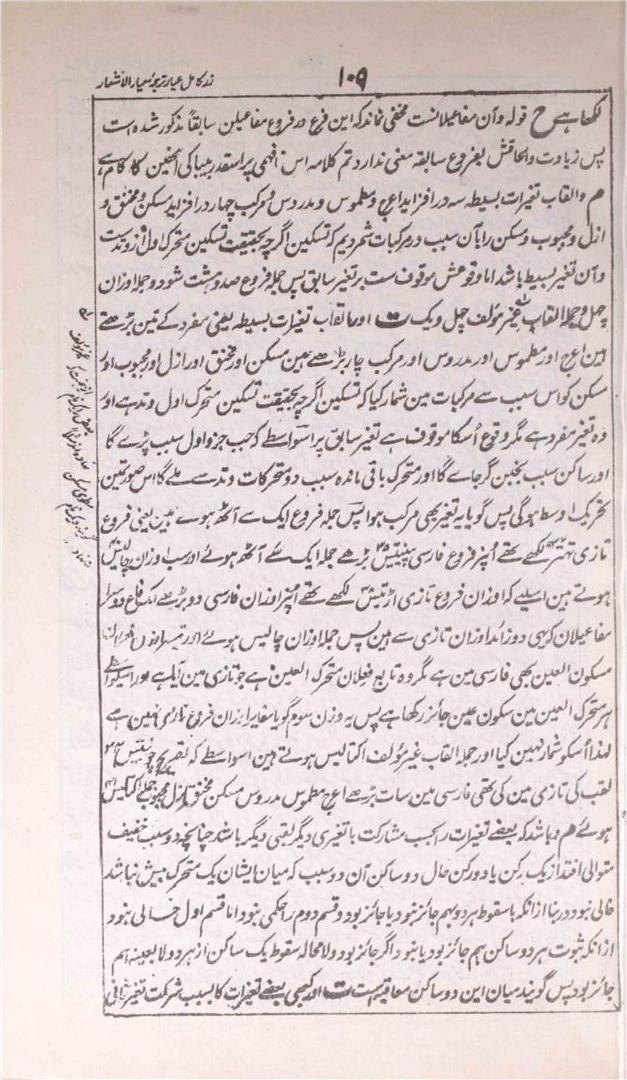 ۱۰۹
زر کامل عیار ترجمۂ معیار الاشعار
لکھا ہے ح قولہ و آن مفاعیلانست مخفی نماند کہ این فرع در فروع مفاعیلن سابقاً مذکور شدہ است
پس زیادت و الحاقش بفروع سابقہ معنی ندارد تم کلامہ اس نافہمی پر اسقدر بیباکی انھین کا کام ہے
م و القاب تغیرات بسیطہ سہ در افزاید اعرج و مطموس و مدروس و مرکب چہار در افزاید مسکن و مخنق و
ازل و مجبوب و مسکن را بآن سبب در مرکبات شمردیم کہ تسکین اگرچہ بحقیقت تسکین متحرک اول از وتدست
و آن تغیر بسیط باشد اما وقوعش موقوف ست بر تغیر سابق پس جملہ فروع صد و ہشت شود و جملہ اوزان
چہل و جملہ القاب غیر مؤلف چہل و یک ت اور القاب تغیرات بسیطہ یعنی مفرد کے تین بڑھتے
ہین اعرج اور مطموس اور مدروس اور مرکب چار بڑھتے ہین مسکن اور مخنق اور ازل اور مجبوب اور
مسکن کو اس سبب سے مرکبات مین شمار کیا کہ تسکین اگرچہ بحقیقت تسکین متحرک اول وتد ہے اور
وہ تغیر مفرد ہے مگر وقوع اُسکا موقوف ہے تغیر سابق پر اسواسطے کہ جب جزو اول سبب پڑے گا
اور ساکن سبب بخبن گر جائے گا اور متحرک باقی ماندہ سبب دو متحرکات وتد سے ملے گا اس صورتمین
تحریک اوسط ہو گی پس گویا یہ تغیر بھی مرکب ہوا پس جملہ فروع ایک سے آٹھ ہوے ہین یعنی فروع
تازی تہتر لکھے تھے اُنپر فروع فارسی پینتیس بڑھے جملہ ایک سے آٹھ ہوئے اور سب اوزان چالیس
ہوتے ہین اسلیے کہ اوزان فروع تازی اڑتیس لکھے تھے اُنپر اوزان فارسی دو بڑھے ایک فاع دوسرا
مفاعیلان کہ یہی دو زائد اوزان تازی سے ہین پس جملہ اوزان چالیس ہوئے اور تیسرا
مسکون العین بھی فارسی مین ہے مگر وہ تابع فعلان متحرک العین ہے جو تازی مین آیا ہے اور اسکو
ہر متحرک العین مین سکون عین جائز رکھا ہے پس یہ وزن سوم گویا مغایر اوزان فروع تازی نہین ہے
لہذا اُسکو شمار نہین کیا اور جملہ القاب غیر مؤلف اکتالیس ہوتے ہین اسواسطے کہ بتصریح چونتیس
لقب کی تازی مین کی تھی فارسی مین سات بڑھے اعرج مطموس مدروس مسکن مخنق ازل مجبوب جملے اکتالیس
ہوئے م و باشد کہ بعضے تغیرات را بحسب مشارکت با تغیری دیگر لقبی دیگر باشد چنانچہ دو سبب خفیف
متوالی افتد از یک رکن یا دو رکن حال دو ساکن آن دو سبب کہ میان ایشان یک متحرک بیش نباشد
خالی نبود در بنا از انکہ با سقوط ہر دو بہم جائز نبود یا جائز بود و قسم دوم را حکمی نبود اما قسم اول خالی نبود
از انکہ ثبوت ہر دو ساکن بہم جائز بود یا نبود اگر جائز بود ولا محالہ سقوط یک ساکن از ہر دو لا بعینہ ہم
جائز بود پس گویند میان این دو ساکن معاقبہ است ت اور کبھی بعضے تغیرات کا بسبب شرکت تغیر ثانی